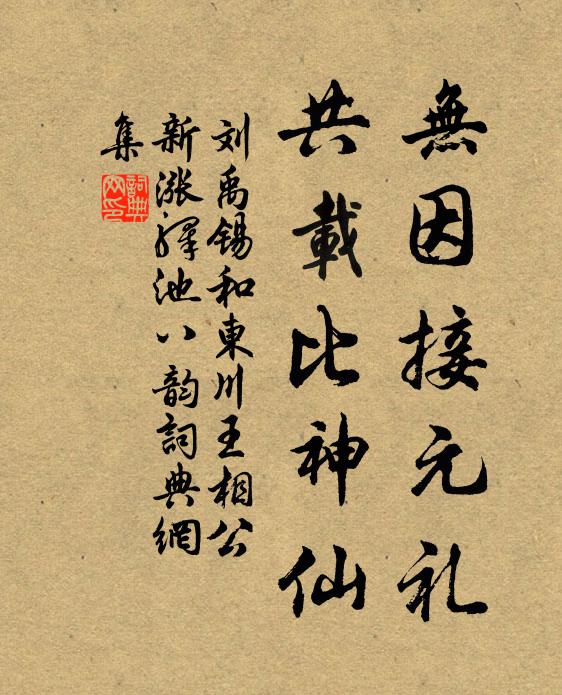 無因接元礼
共載比神仙
刘禹锡和東川王相公
新涨驛池八韵詞典網
集
詞典
网印